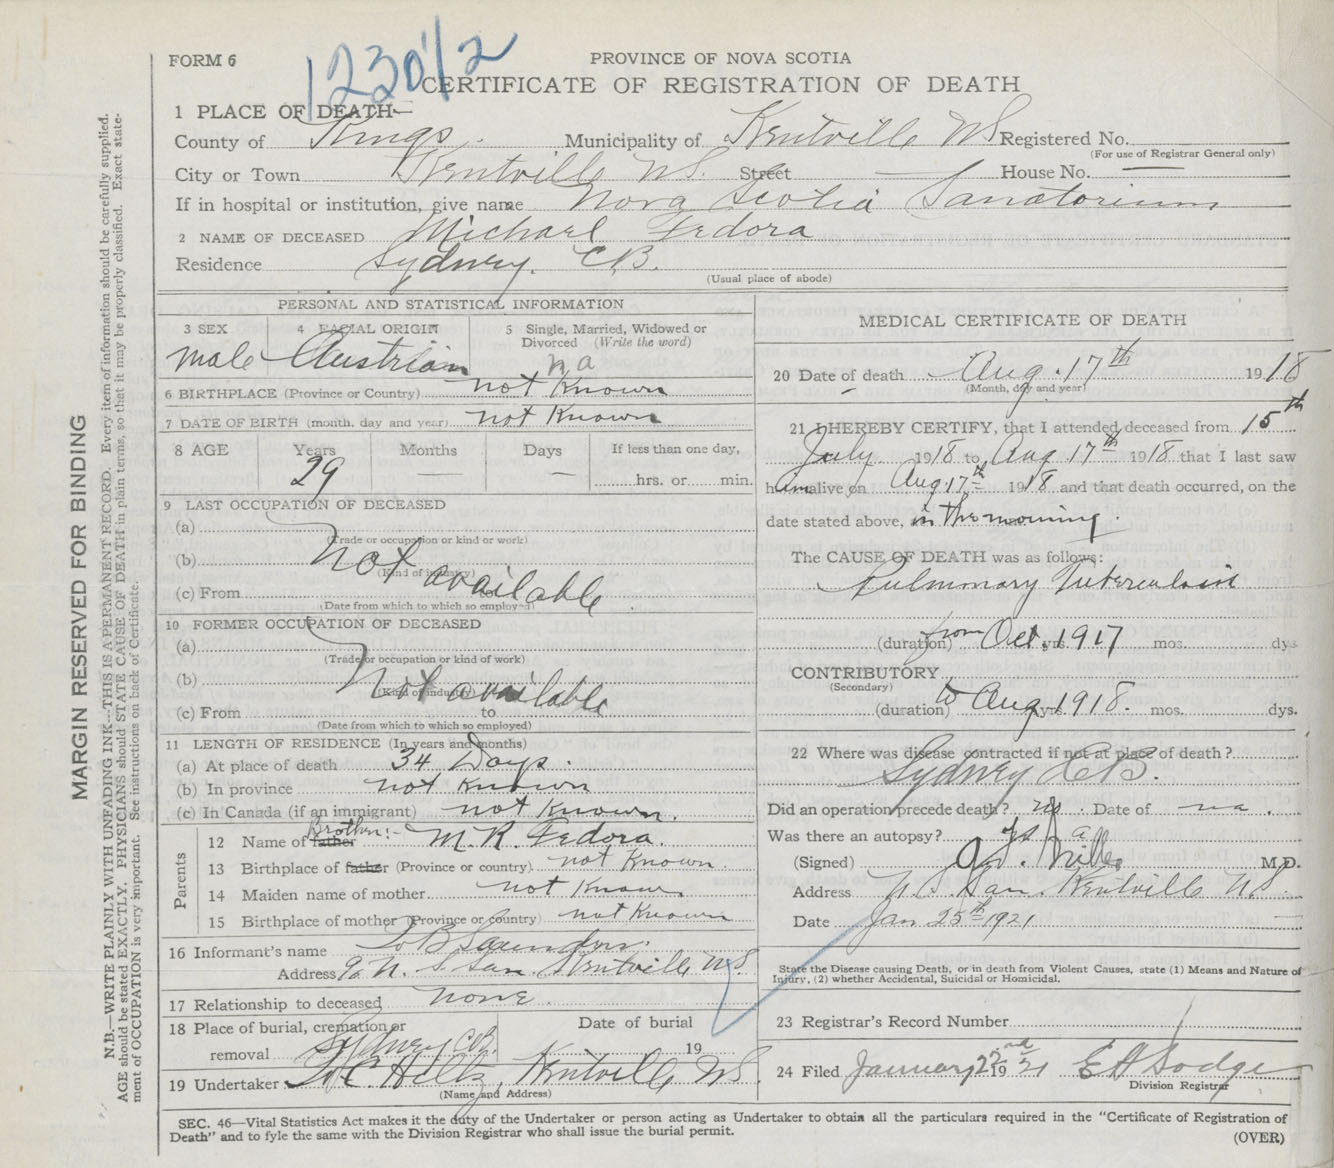 FORM 6
1230 1/2
PROVINCE OF NOVA SCOTIA
CERTIFICATE OF REGISTRATION OF DEATH
1 PLACE OF DEATH—
County of Kings. Municipality of Kentville NS Registered No.
(For use of Registrar General only)
City or Town Kentville NS. Street — House No. —
If in hospital or institution, give name Nova Scotia Sanatorium
2 NAME OF DECEASED Michael Fedora
Residence Sydney. C.B.
(Usual place of abode)
PERSONAL AND STATISTICAL INFORMATION
3 SEX 4 RACIAL ORIGIN 5 Single, Married, Widowed or Divorced (Write the word)
male Austrian na
6 BIRTHPLACE (Province or Country) not Known
7 DATE OF BIRTH (month, day and year) not Known
8 AGE Years Months Days If less than one day,
29 — — hrs. or min.
9 LAST OCCUPATION OF DECEASED
(a)
(Trade or occupation or kind or work)
(b) not available
(Kind of industry)
(c) From to
(Date from which to which so employed)
10 FORMER OCCUPATION OF DECEASED
(a)
(Trade or occupation or kind of work)
(b) Not available
(Kind of industry)
(c) From to
(Date from which to which so employed)
11 LENGTH OF RESIDENCE (In years and months)
(a) At place of death 34 Days.
(b) In province not Known
(c) In Canada (if an immigrant) not Known.
Parents
12 Name of father Brother:- M. R. Fedora.
13 Birthplace of father (Province or country) not Known.
14 Maiden name of mother not Known
15 Birthplace of mother (Province or country) not Known
16 Informant's name B Saunders.
Address N. S. San. Kentville NS.
17 Relationship to deceased none.
18 Place of burial, cremation or removal Sydney CB. Date of burial 19
19 Undertaker Kentville NS
(Name and Address)
MEDICAL CERTIFICATE OF DEATH
20 Date of death Aug. 17th 1918
(Month, day and year)
21 I HEREBY CERTIFY, that I attended deceased from 15th
July 1918 to Aug 17th 1918 that I last saw
him alive on Aug 17th 1918 and that death occurred, on the
date stated above, in the morning.
The CAUSE OF DEATH was as follows:
Pulmonary Tuberculosis
(duration) from Oct. yrs. 1917 mos. dys.
CONTRIBUTORY
(Secondary)
(duration) to Aug yrs. 1918. mos. dys.
22 Where was disease contracted if not at place of death?
Sydney CB.
Did an operation precede death? no. Date of na.
Was there an autopsy?
(Signed) Miller M.D.
Address N. S. San. Kentville NS.
Date Jan 25th 1921
State the Disease causing Death, or in death from Violent Causes, state (1) Means and Nature of
Injury, (2) whether Accidental, Suicidal or Homicidal.
23 Registrar's Record Number
24 Filed January 22nd 1921 E H Dodge
Division Registrar
SEC. 46—Vital Statistics Act makes it the duty of the Undertaker or person acting as Undertaker to obtain all the particulars required in the "Certificate of Registration of
Death" and to fyle the same with the Division Registrar who shall issue the burial permit.
(OVER)
MARGIN RESERVED FOR BINDING
N.B.—WRITE PLAINLY WITH UNFADING INK—THIS IS A PERMANENT RECORD. Every item of information should be carefully supplied.
AGE should be stated EXACTLY. PHYSICIANS should STATE CAUSE OF DEATH in plain terms, so that it may be properly classified. Exact state-
ment of OCCUPATION is very important. See instructions on back of Certificate.